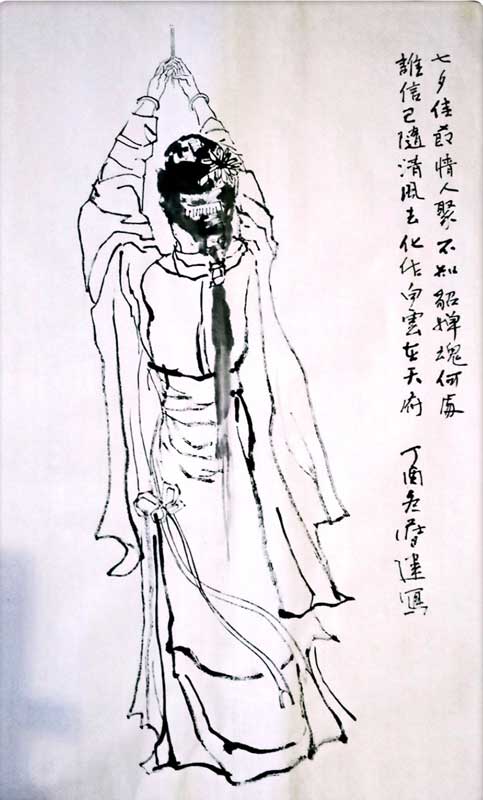 七夕佳節情人聚不知貂嬋魂何處
誰信已隨清風去化作白雲在天府
丁酉冬